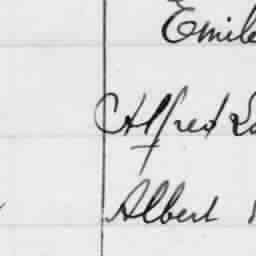 Emile
Alfred
Albert